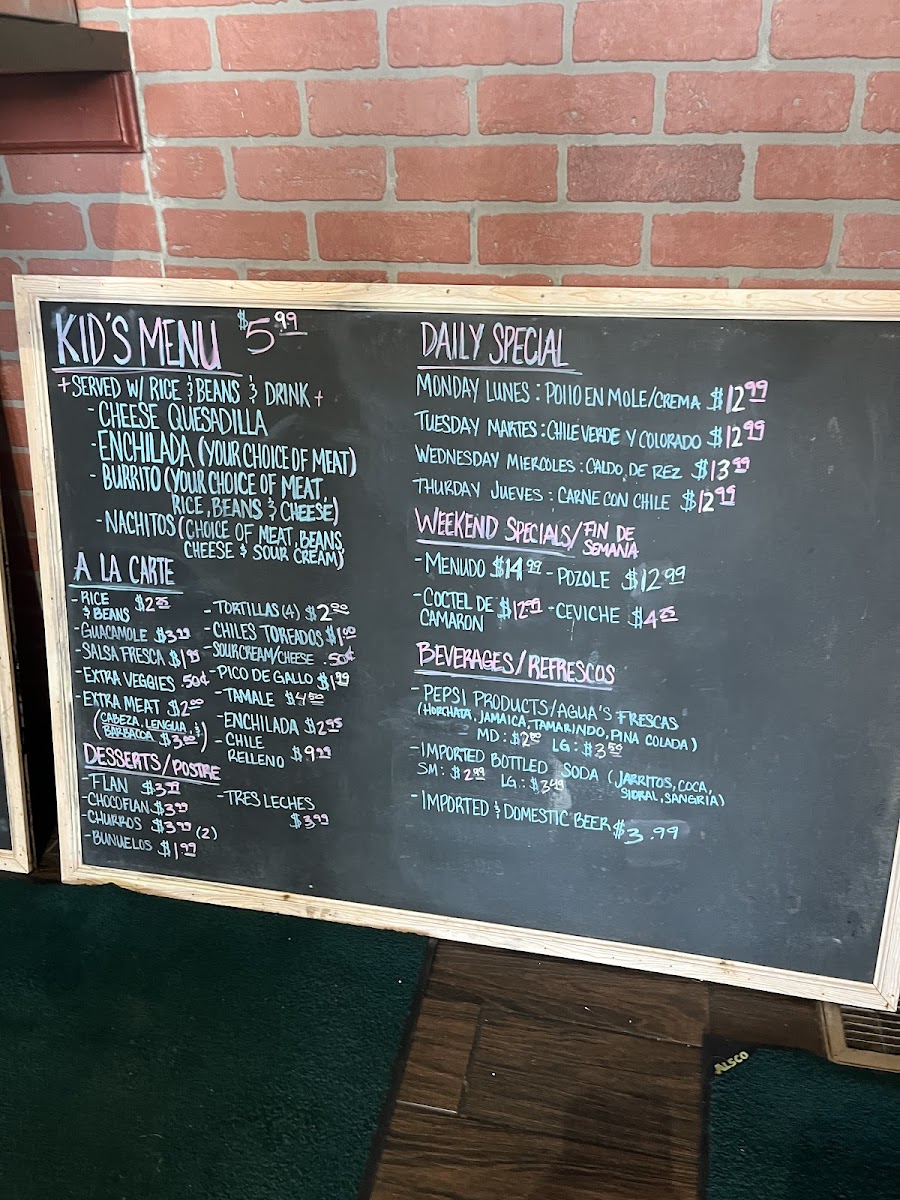 KID'S MENU $5.99
+ SERVED W/ RICE & BEANS & DRINK +
- CHEESE QUESADILLA
- ENCHILADA (YOUR CHOICE OF MEAT)
- BURRITO (YOUR CHOICE OF MEAT,
RICE, BEANS & CHEESE)
- NACHITOS (CHOICE OF MEAT, BEANS,
CHEESE & SOUR CREAM)
A LA CARTE
- RICE
& BEANS $2.25
- GUACAMOLE $3.99
- SALSA FRESCA $1.95
- EXTRA VEGGIES .50¢
- EXTRA MEAT $2.00
(CABEZA, LENGUA, &
BARBACOA $3.00)
- TORTILLAS (4) $2.00
- CHILES TOREADOS $1.00
- SOUR CREAM/CHEESE .50¢
- PICO DE GALLO $1.99
- TAMALE $4.50
- ENCHILADA $2.95
- CHILE
RELLENO $9.25
DESSERTS/POSTRE
- FLAN $3.99
- CHOCOFLAN $3.99
- CHURROS $3.99 (2)
- BUNUELOS $1.99
- TRES LECHES
$3.99
DAILY SPECIAL
MONDAY LUNES : POLLO EN MOLE/CREMA $12.99
TUESDAY MARTES : CHILE VERDE Y COLORADO $12.99
WEDNESDAY MIERCOLES : CALDO DE REZ $13.99
THURDAY JUEVES : CARNE CON CHILE $12.99
WEEKEND SPECIALS/ FIN DE
SEMANA
- MENUDO $14.99 - POZOLE $12.99
- COCTEL DE
CAMARON $12.99 - CEVICHE $4.25
BEVERAGES/REFRESCOS
- PEPSI PRODUCTS/AGUA'S FRESCAS
(HORCHATA, JAMAICA, TAMARINDO, PINA COLADA)
MD: $2.50 LG: $3.50
- IMPORTED BOTTLED SODA (JARRITOS, COCA,
SIDRAL, SANGRIA)
SM: $2.99 LG: $3.49
- IMPORTED & DOMESTIC BEER $3.99
ALSCO